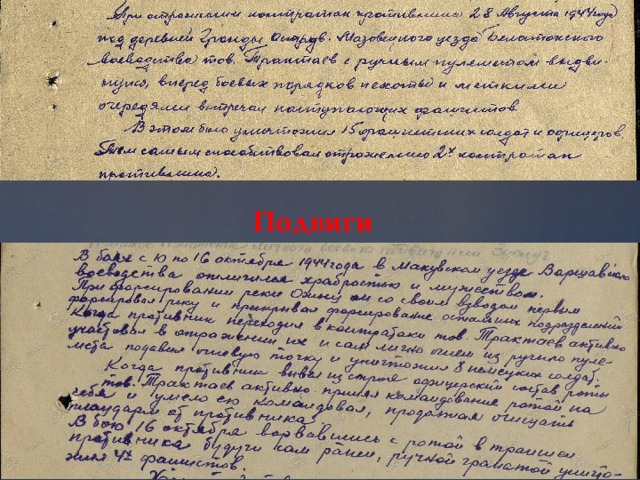 При отражении контратак противника 28 Августа 1944 года
под деревней Гронды Остров. Мазовецкого уезда Белостокского
воеводства тов. Трактаев с ручным пулеметом выдви-
нулся вперед боевых порядков пехоты и меткими
очередями встречал наступающих фашистов.
В этом бою уничтожил 15 фашистских солдат и офицеров.
Тем самым способствовал отражению 2х контратак
противника.
Подвиги
В боях с 10 по 16 октября 1944 года в Макувском уезде Варшавского
воеводства отличился храбростью и мужеством.
При форсировании реки он со своим взводом первым
форсировал реку и прикрывал форсирование остальных подразделений
Когда противник переходил в контратаки тов. Трактаев активно
участвовал в отражении их и сам лично огнем из ручного пуле-
мета подавил огневую точку и уничтожил 8 немецких солдат.
Когда противник вывел из строя офицерский состав роты
тов. Трактаев активно принял командование ротой на
себя и умело ею командовал, продолжая очищать
плацдарм от противника.
В бою 16 октября ворвавшись с ротой в траншеи
противника будучи сам ранен, ручной гранатой уничто-
жил 4х фашистов.